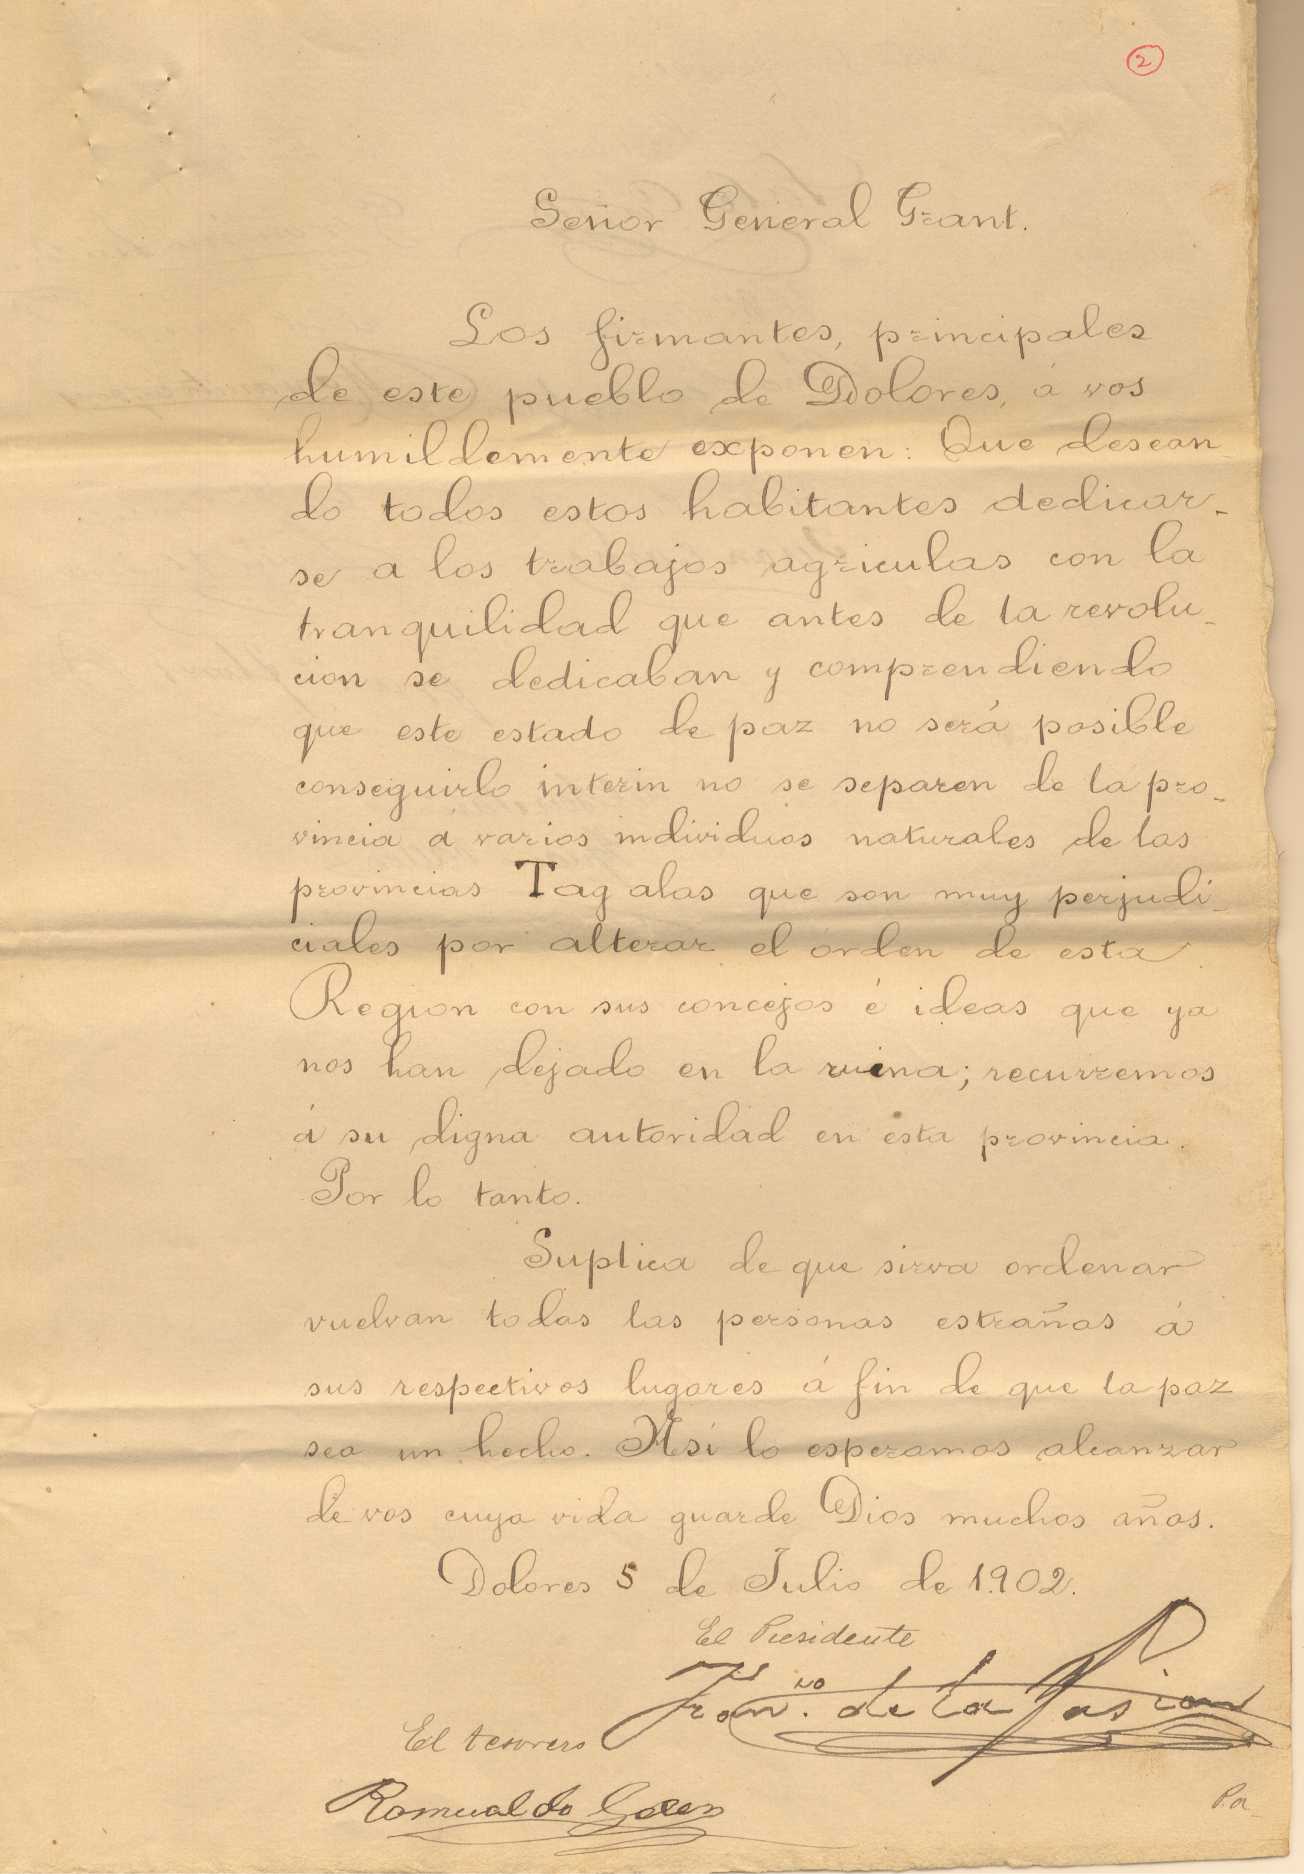 2
Señor General Grant.
Los firmantes, principales
de este pueblo de Dolores, á vos
humildemente exponen: Que desean
do todos estos habitantes dedicar-
se a los trabajos agriculas con la
tranquilidad que antes de la revolu-
cion se dedicaban y comprendiendo
que este estado de paz no será posible
conseguirlo interin no se separen de la pro-
vincia á varios individuos naturales de las
provincias Tagalas que son muy perjudi-
ciales por alterar el orden de esta
Region con sus concejos é ideas que ya
nos han dejado en la ruina; recurremos
á su digna autoridad en esta provincia.
Por lo tanto.
Suplica de que sirva ordenar
vuelvan todas las personas estrañas á
sus respectivos lugares á fin de que la paz
sea un hecho. Asi lo esperamos alcanzar
de vos cuya vida guarde Dios muchos años.
Dolores 5 de Julio de 1902.
El Presidente
Fran.co de la Pasion
El tesorero
Romualdo